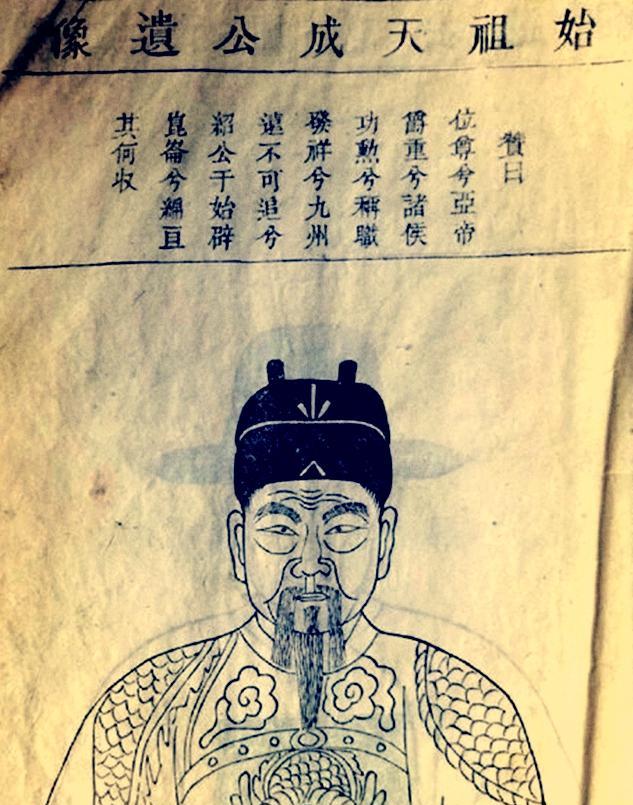 始祖天成公遺像
贊曰
位尊兮亞帝
爵重兮諸侯
功勲兮稱職
發祥兮九州
遠不可追兮
紹公于始辟
崑崙兮綿亘
其何収